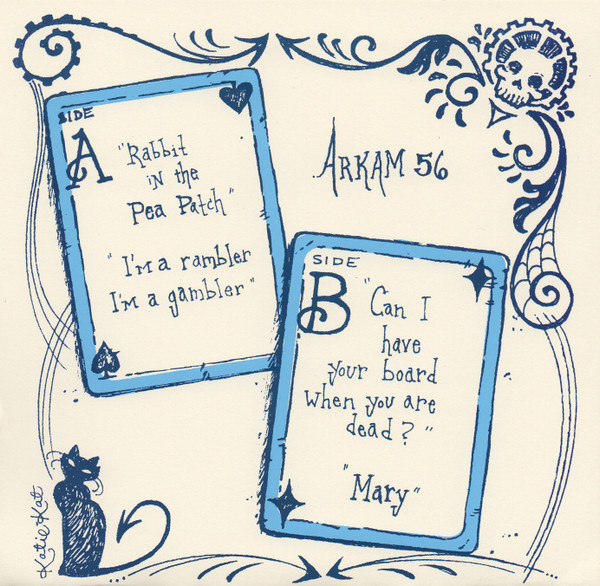 SIDE
A
"Rabbit
in the
Pea Patch"
"I'm a rambler
I'm a gambler"
ARKAM 56
SIDE
B
"Can I
have
your board
when you are
dead?"
"Mary"
Katie Kat